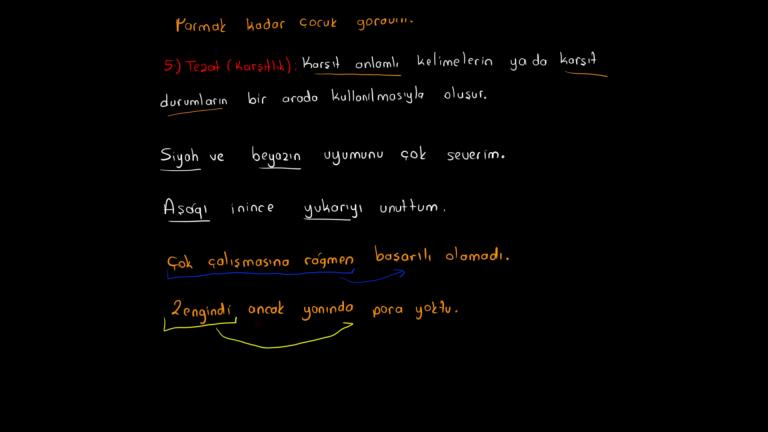 Parmak kadar çocuk gördüm.
5) Tezat (Karşıtlık): Karşıt anlamlı kelimelerin ya da karşıt
durumların bir arada kullanılmasıyla oluşur.
Siyah ve beyazın uyumunu çok severim.
Aşağı inince yukarıyı unuttum.
Çok çalışmasına rağmen başarılı olamadı.
Zengindi ancak yanında para yoktu.